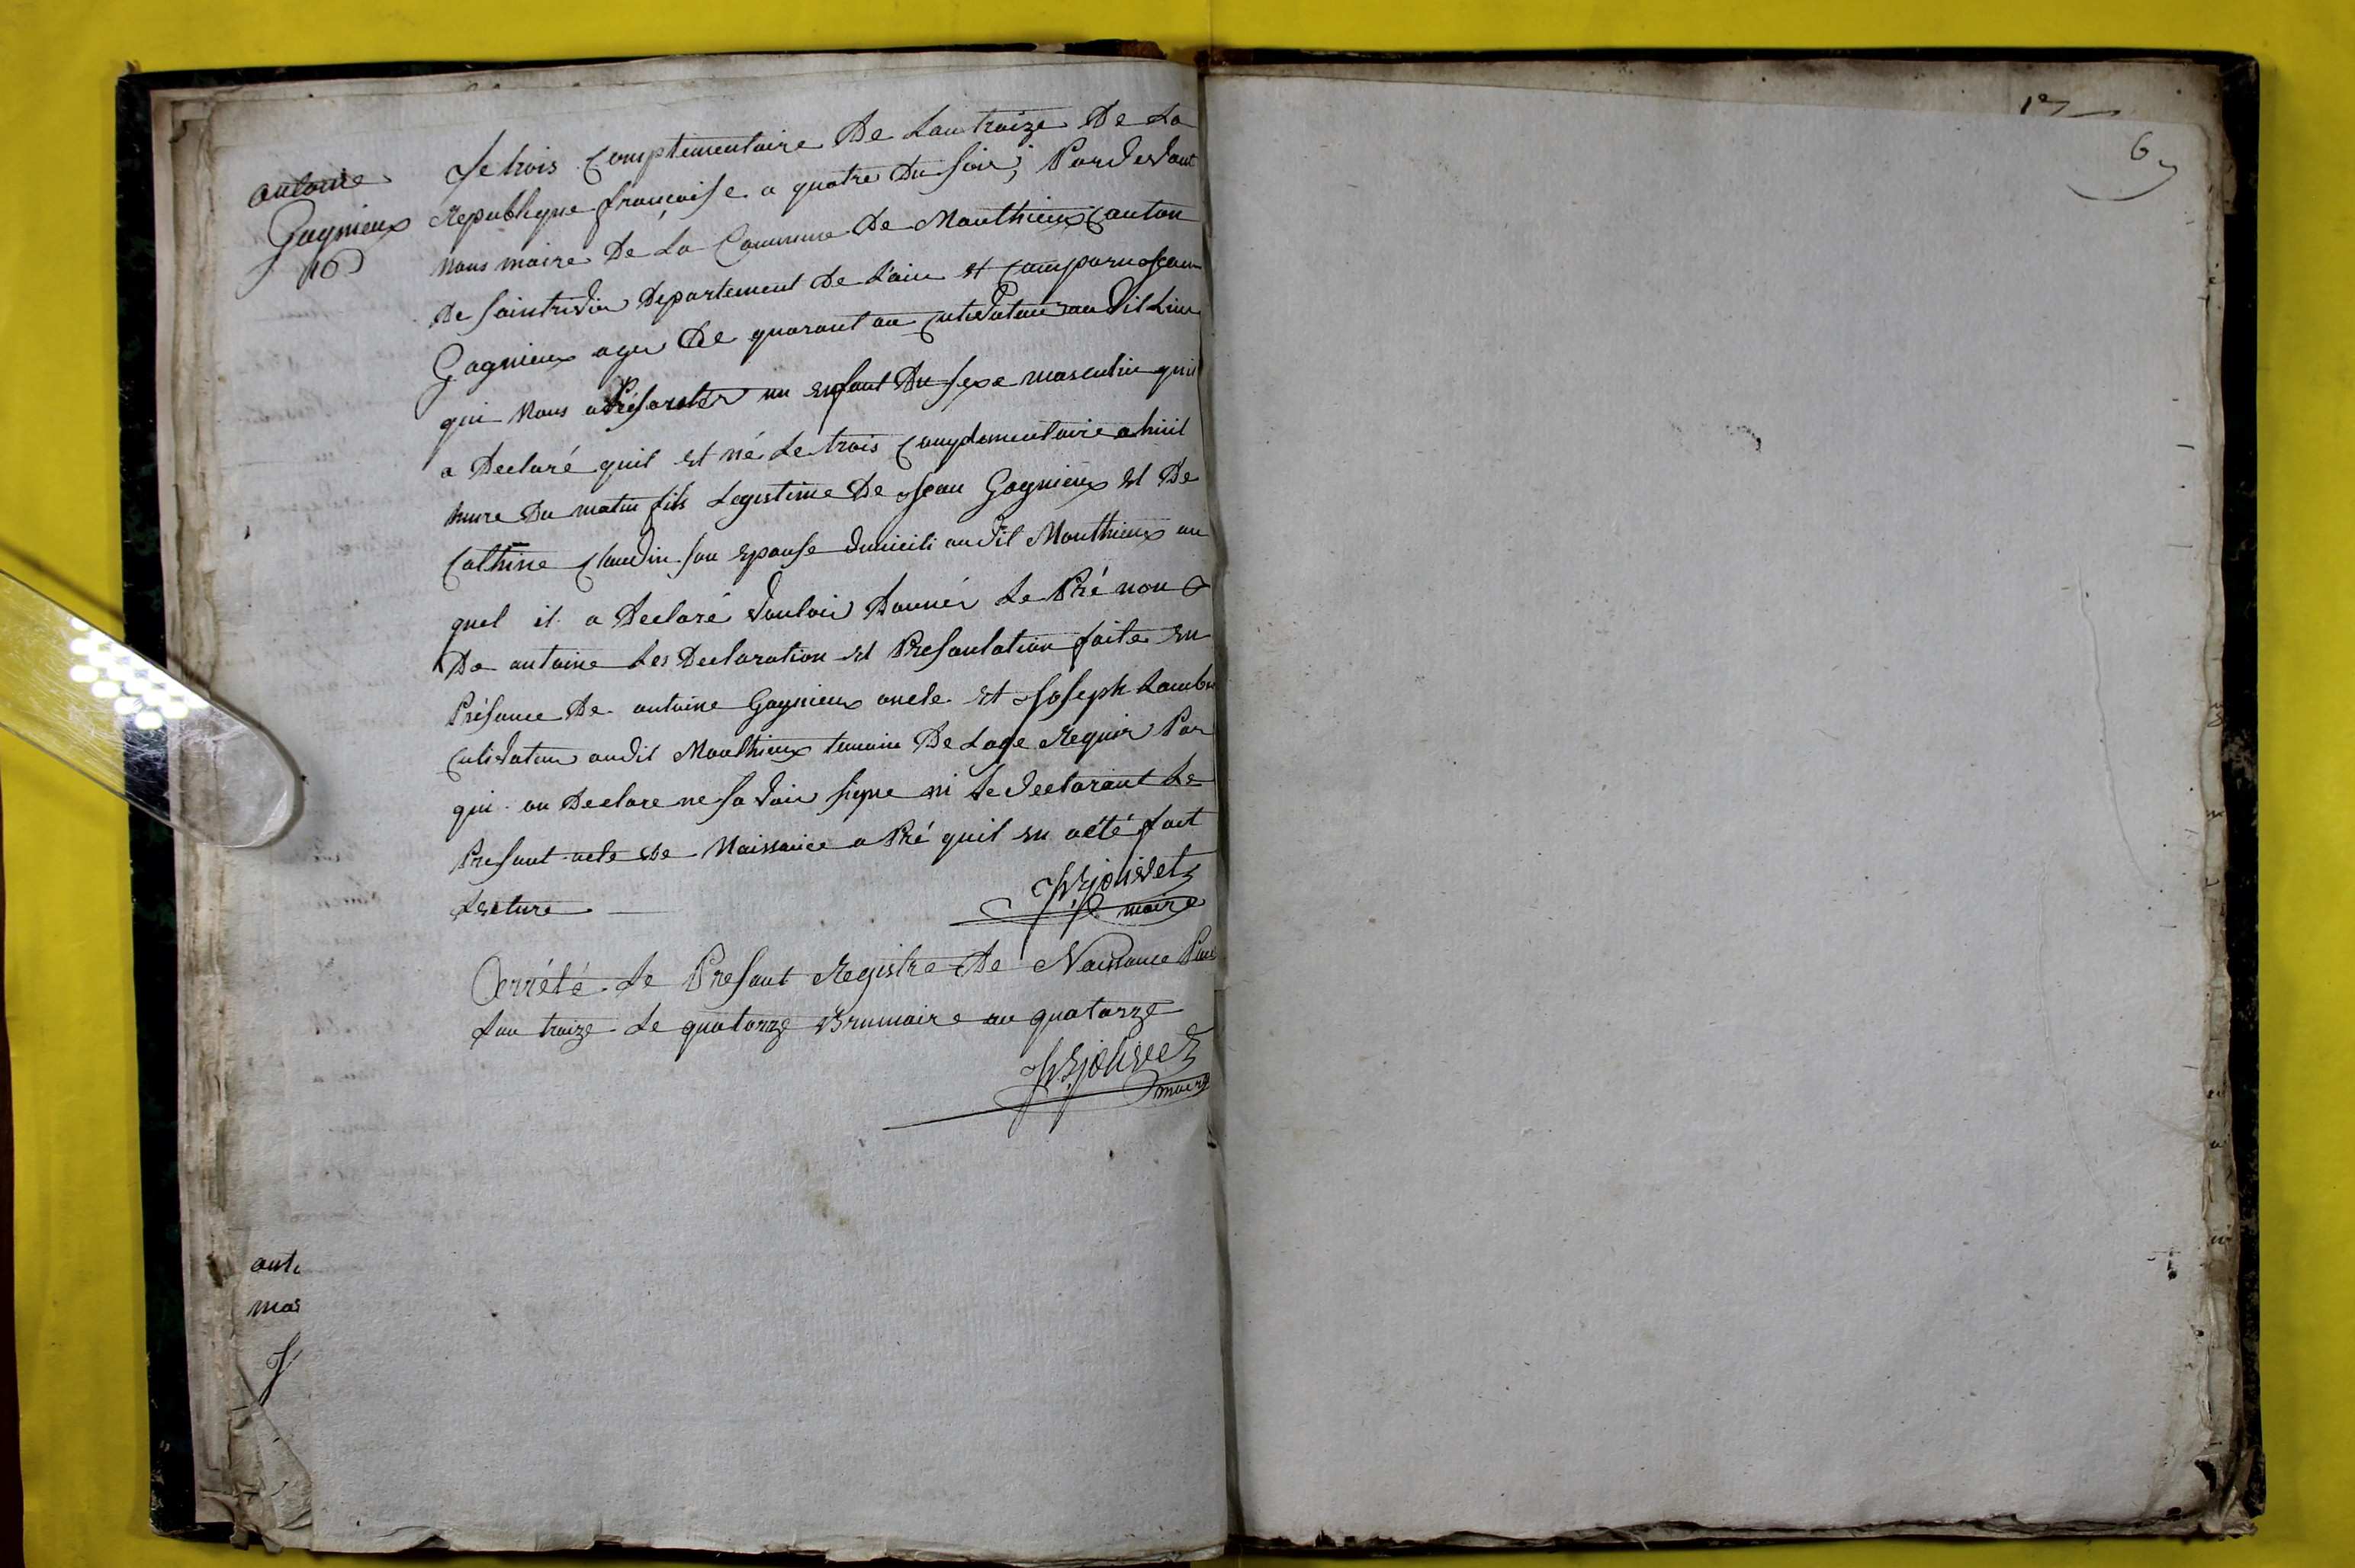 antoine
Gagnieux
16
Le trois Complementaire De Lan traize De La
Republique francoise a quatre Du soir ; Pardevant
nous maire De La Commune De Monthieux Canton
De saintrivier Departement De L'ain et Comparu Jean
Gagnieux agee De quarant an Cultivateur au dit Lieu
qui Nous a Présanter un enfant Du sexe masculin quil
a Declaré quil et né Le trois Complementaire a huit
hure Du matin fils Legestime De Jean Gagnieux et De
Cathine Claudin son epouse domicili audit Monthieux au
quel il a Declaré vouloir Donner Le Pré non
De antoine Les Declaration et Presantation faite en
Présance De antoine Gagnieux oncle et Joseph Lambe
Cultivateur audit Monthieux temoin De Lage Requir Par
qui on Declare ne savoir signe ni Le declarant Le
Presant acte De Naissance a Pré quil en a été fait
Lecture
jolivet
maire
Arrété Le Presant Registre De Naissance Pour
Lan traize Le quatorze Brumaire an quatorze
jolivet
maire
ant
mas
J
17
6